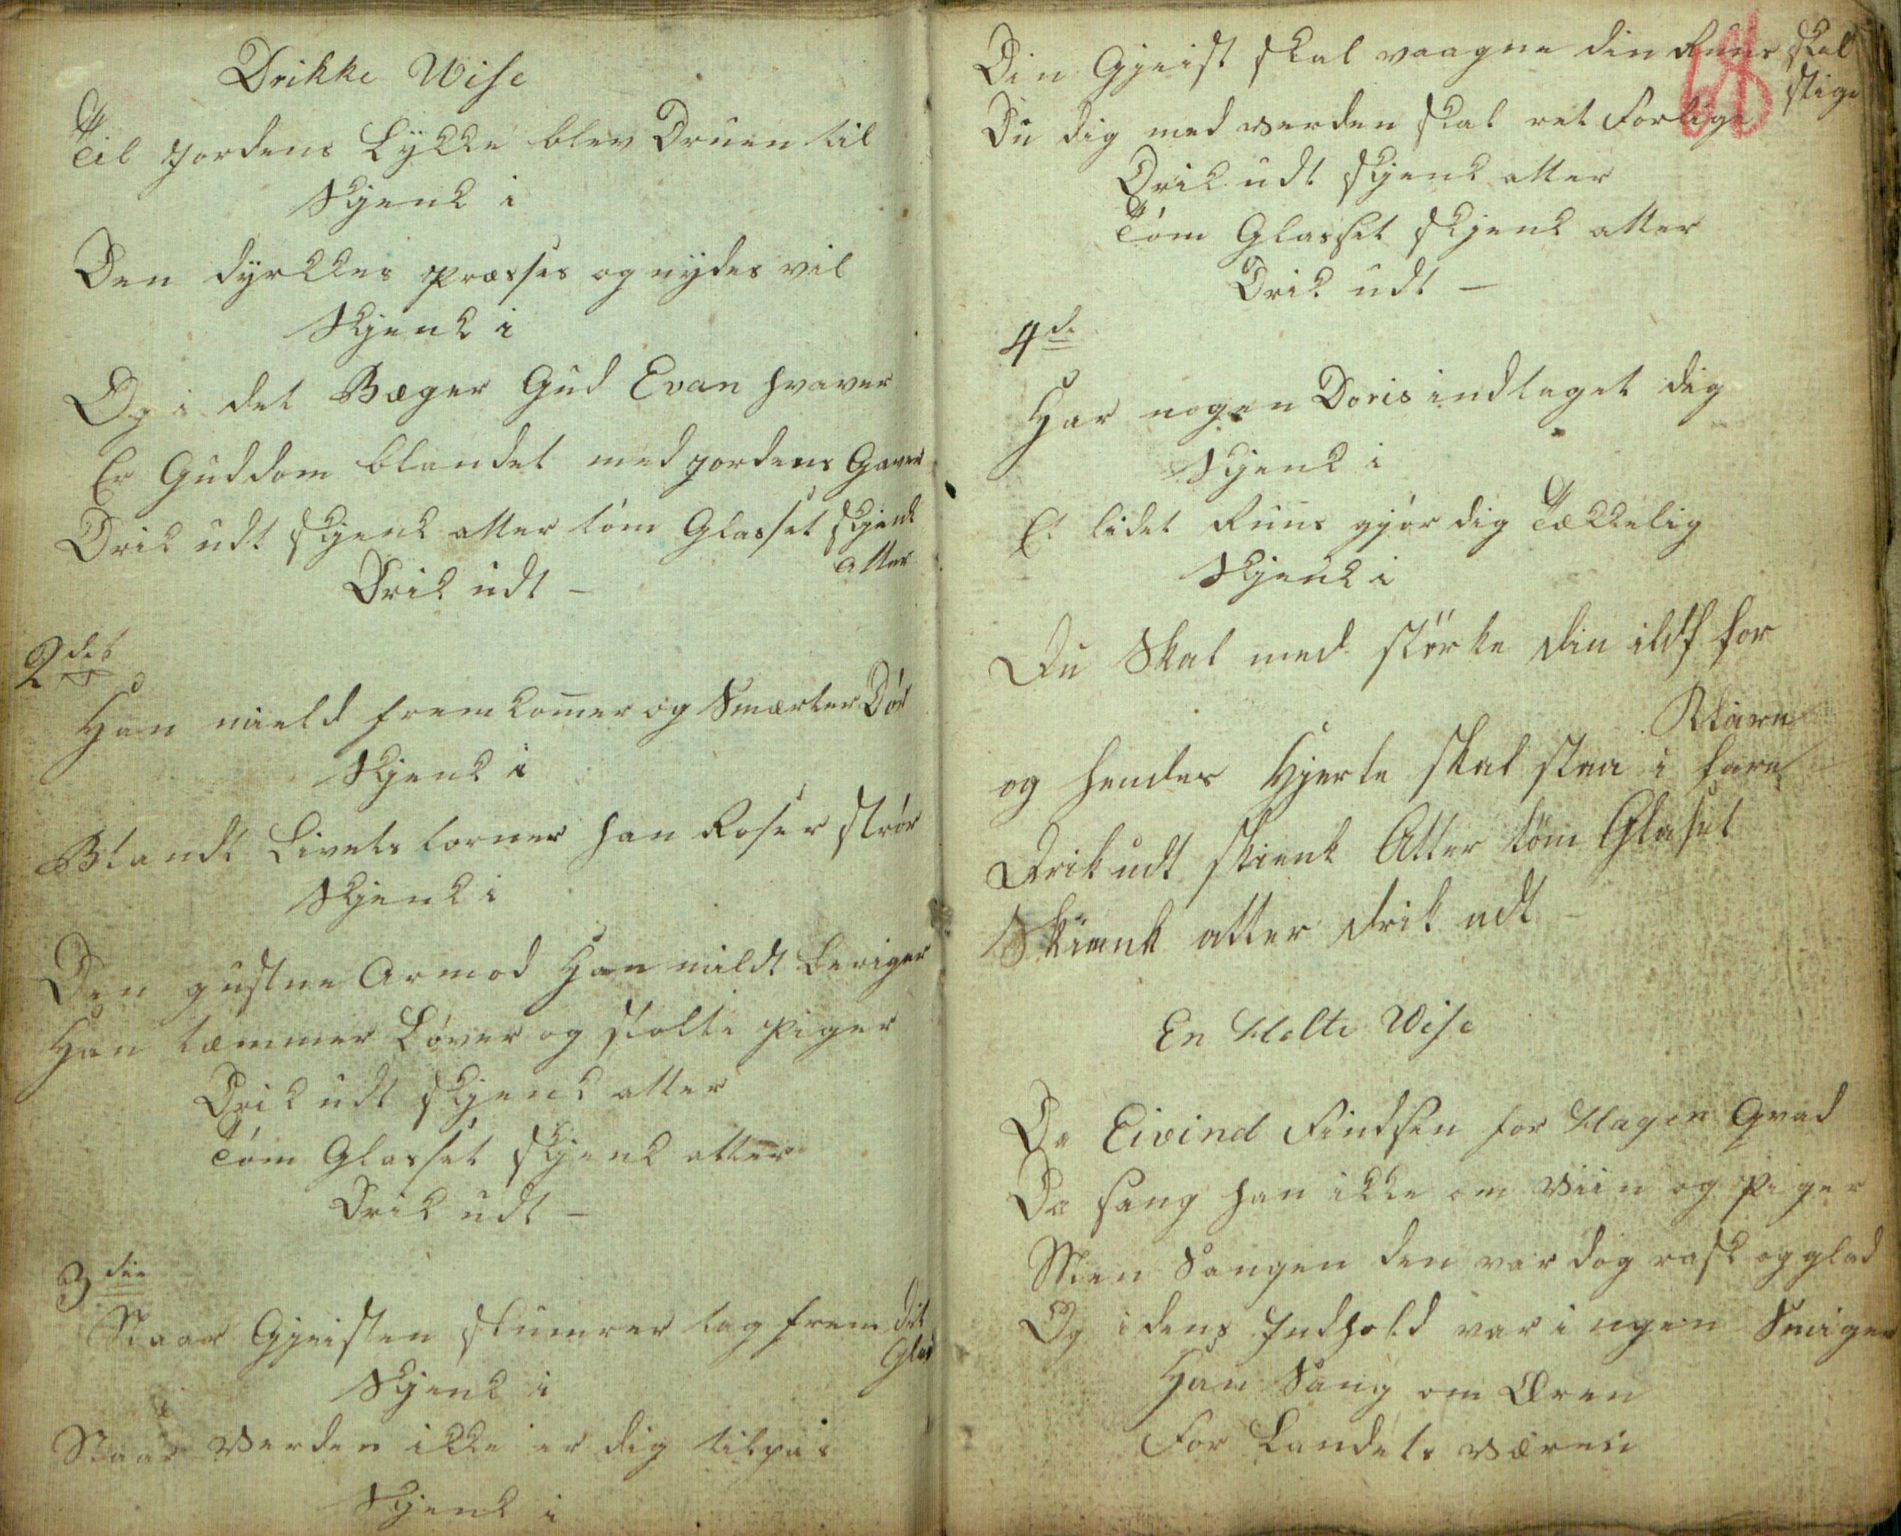 Drikke Wise
Til Jordens Lykke blev Druen til
Skjenk i
Den dyrkkes præsses og nydes vil
Skjenk i
Og i det Bæger Gud Evan hvaver
Er Guddom blandet med Jordens Gaver
Drik udt skjenk atter töm Glasset skjenk
atter
Drik udt –
2det
Han mild fremkommer og Smærter Dör
Skjenk i
Blandt Livets torner han Roser strör
Skjenk i
Den gustne Armod Han mildt Beriger
Han tæmmer Löver og stolte Piger
Drik udt skjenk atter
Töm Glasset skjenk atter
Drik udt –
3die
Naar Gjeisten slumrer tag frem dit
Glas
Skjenk i
Naar Verden ikke er dig tilpas
Skjenk i
68
Din Gjeist skal vaagne din Ruus skal
stige
Du dig med Verden skal ret Forlige
Drik udt skjenk atter
Töm Glasset skjenk atter
Drik udt –
4de
Har nogen Doris indtaget dig
Skjenk i
Et lidet Ruus gjör dig Tækkelig
Skjenk i
Du Skal med störke din ild for
Klare
og hendes Hjerte skal staa i fare
Drik udt skienk Atter töm Glaset
Skienk atter drik udt –
En Helte Wise
Da Eivind Findsen for Hagen Qvad
Da sang han ikke om Viin og Piger
Men Sangen den var dog rask og glad
Og i dens Indhold var ingen Smiger
Han Sang om Æren
For Landets Væren